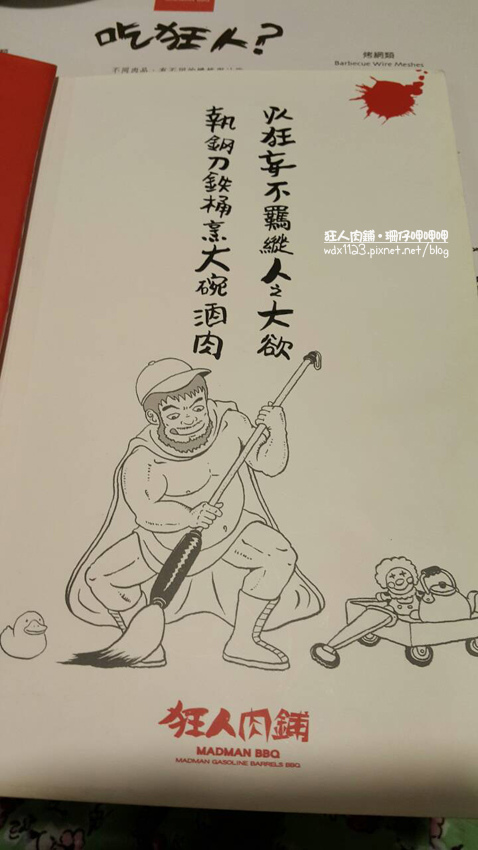 吃狂人?
烤網類
Barbecue Wire Meshes
以狂妄不羈縱人之大欲
執鋼刀鉄桶烹大碗酒肉
狂人肉舖•珊仔呷呷呷
wdx1123.pixnet.net/blog
狂人肉舖
MADMAN BBQ
MADMAN GASOLINE BARRELS BBQ